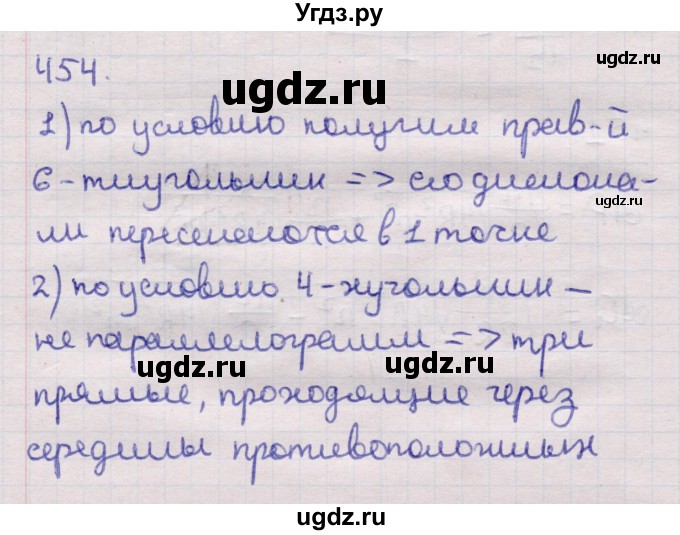 Угдз.ру
454.
ugdz.ru
ugdz.ru
1) по условию получим прав-й
6-тиугольник => его диагона-
ли пересекаются в 1 точке
ugdz.ru
2) по условию 4-хугольник –
не параллелограмм => три
ugdz.ru
ugdz.ru
прямые, проходящие через
середины противоположных
ugdz.ru